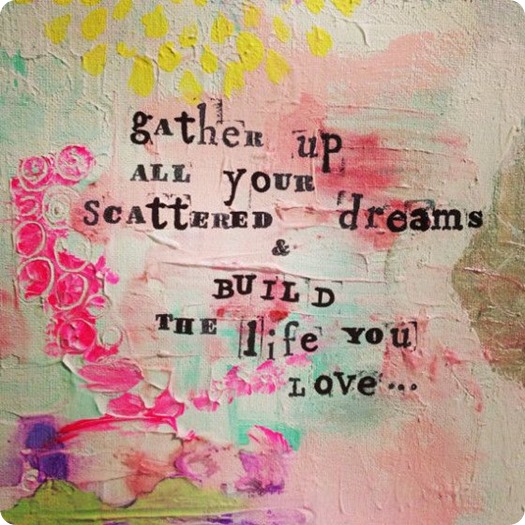 gATheR up
ALL yOUR
ScATTERED dreams
&
BUILD
THE life YOU
LOVe...